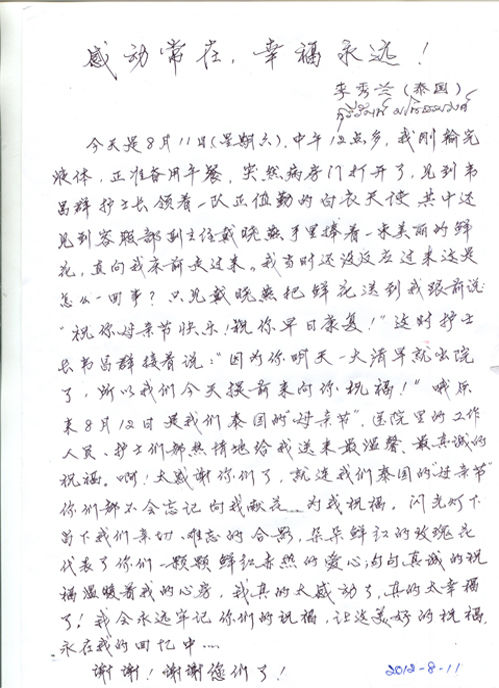 感动常在，幸福永远！
李秀兰（泰国）
今天是8月11日(星期六)，中午12点多，我刚输完
液体，正准备用午餐，突然病房门打开了，见到韦
昌群护士长领着一队正值勤的白衣天使，其中还
见到客服部副主任戴晓燕手里捧着一束美丽的鲜
花，直向我床前走过来。我当时还没反应过来这是
怎么一回事？只见戴晓燕把鲜花送到我跟前说：
“祝你母亲节快乐！祝你早日康复！”这时护士
长韦昌群接着说：“因为你明天一大清早就出院
了，所以我们今天提前来向你祝福！”哦原
来8月12日是我们泰国的“母亲节”，医院里的工作
人员、护士们都热情地给我送来最温馨、最真诚的
祝福。啊！太感谢你们了，就连我们泰国的“母亲节”
你们都不会忘记向我献花，为我祝福，闪光灯下
留下我们亲切、难忘的合影，朵朵鲜红的玫瑰花
代表了你们一颗颗鲜红赤热的爱心；句句真诚的祝
福温暖着我的心房，我真的太感动了，真的太幸福
了！我会永远牢记你们的祝福，让这美好的祝福，
永在我的回忆中……
谢谢！谢谢您们了！
2012-8-11